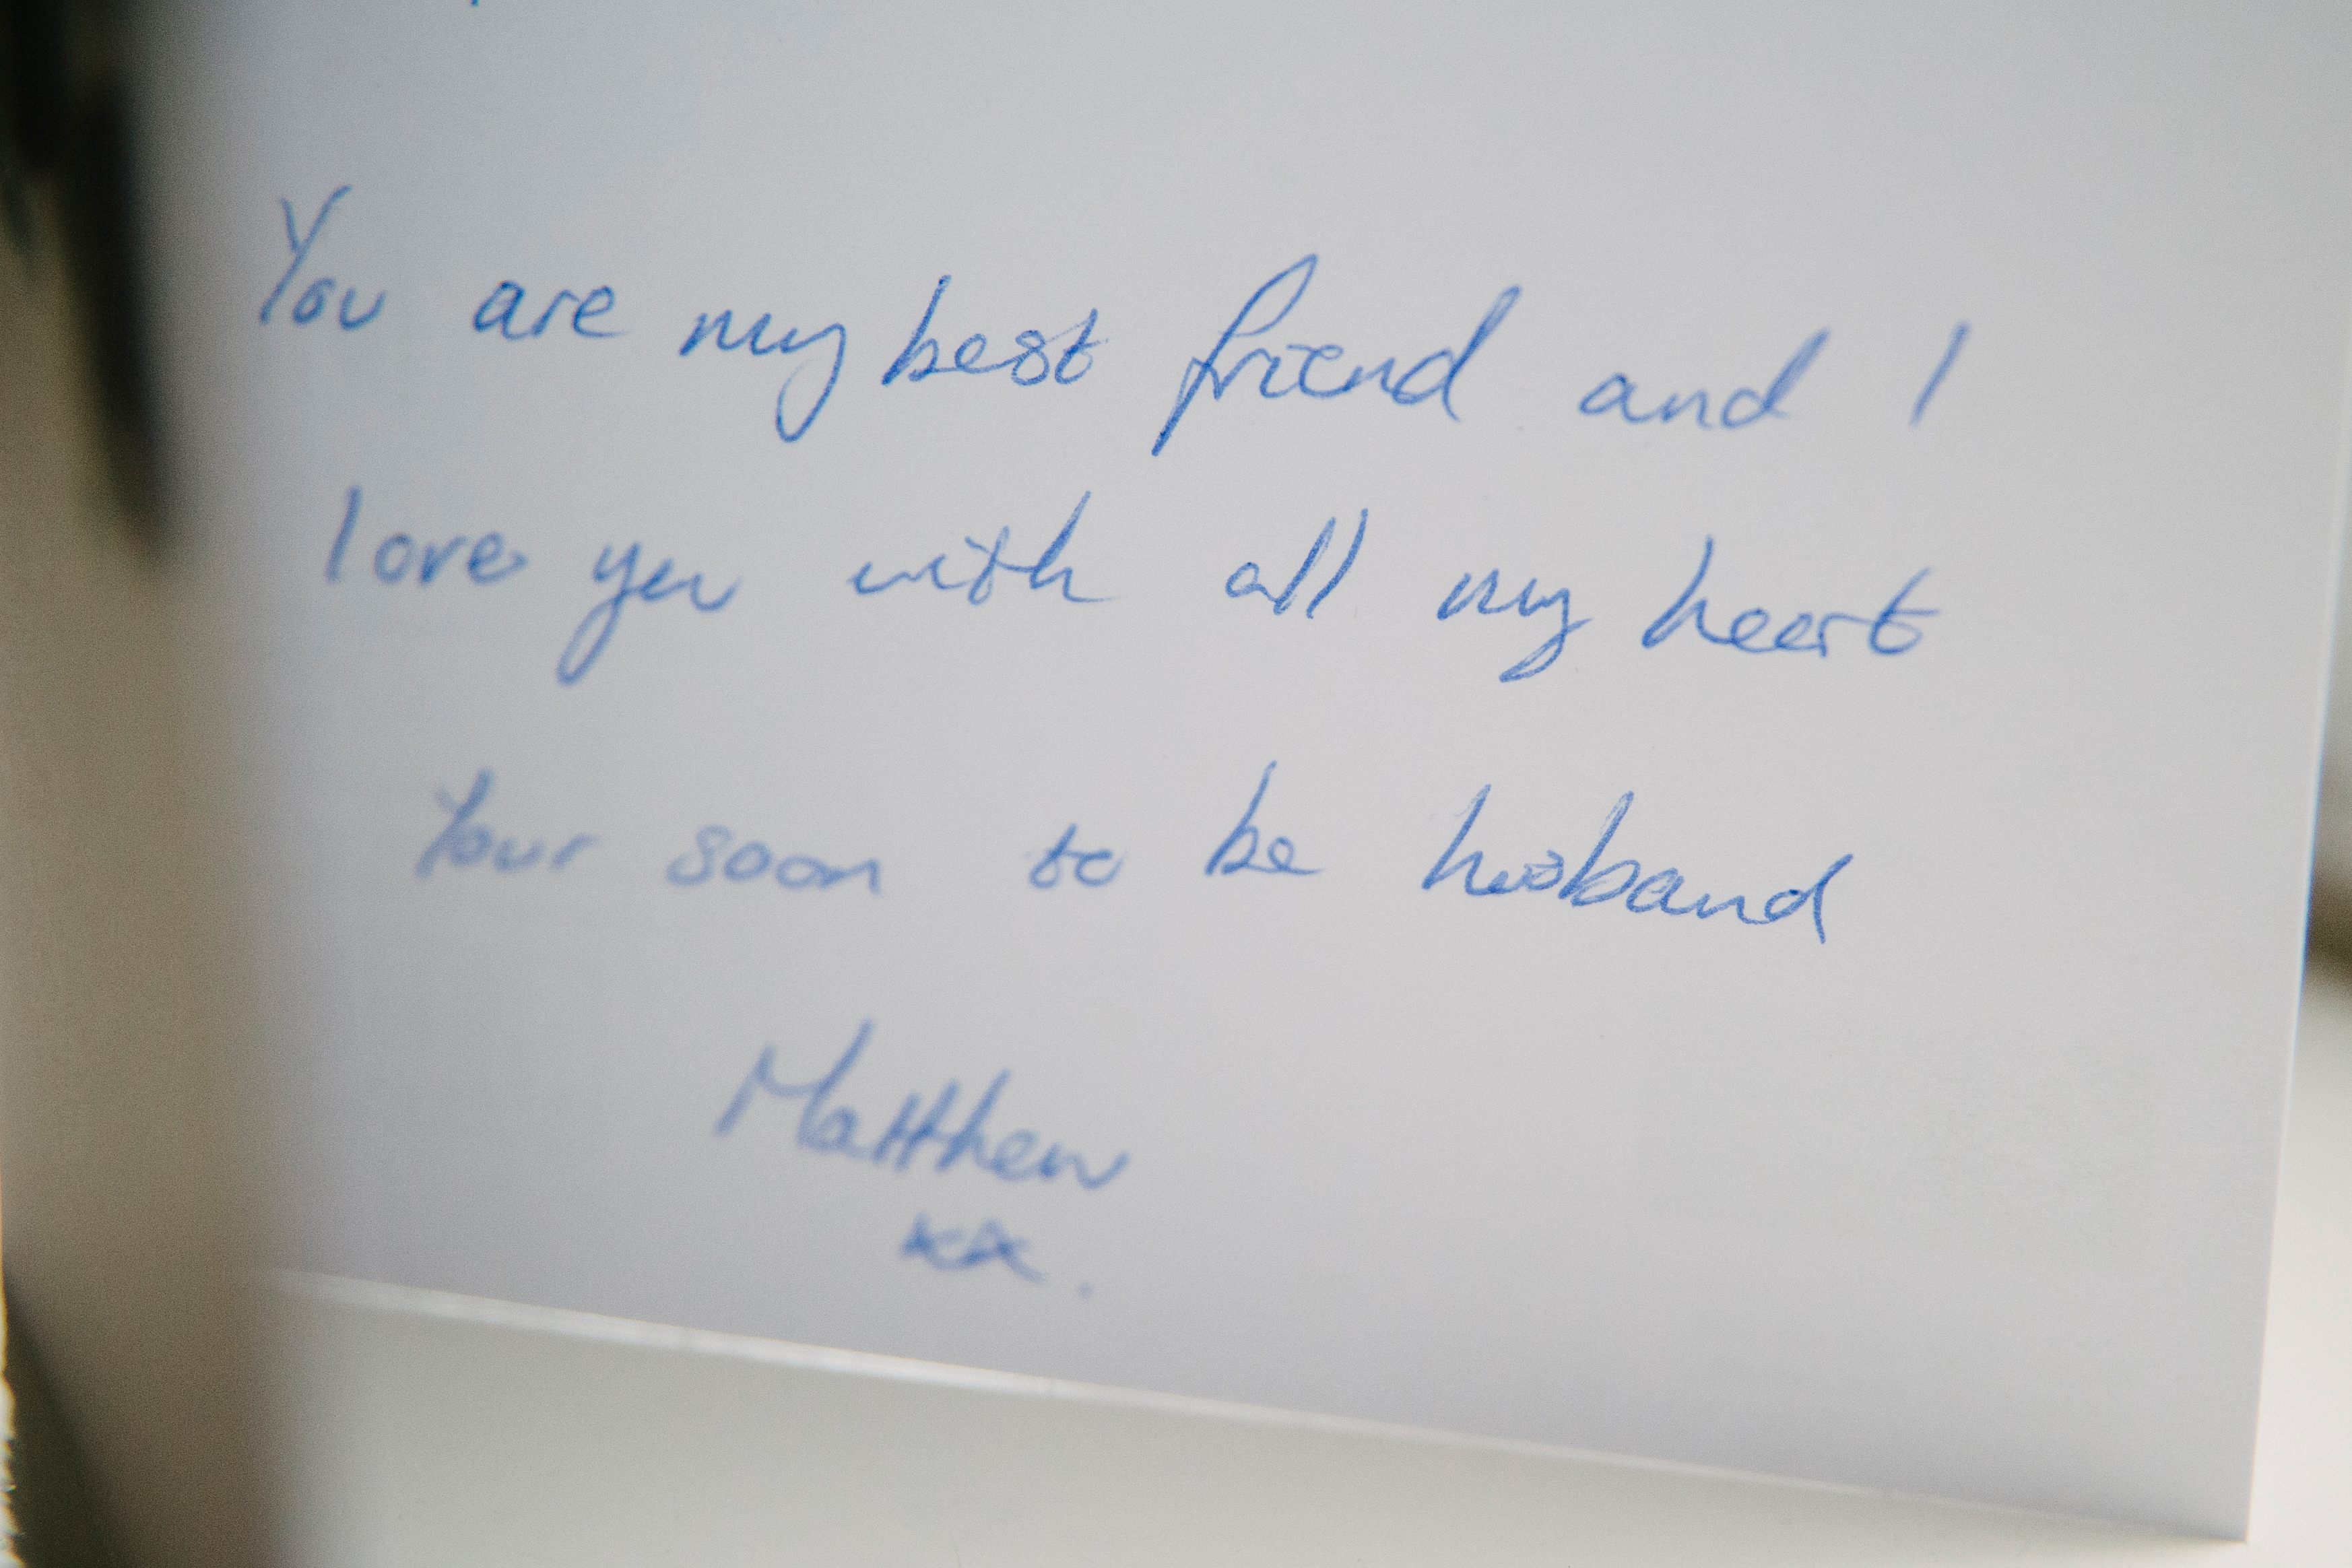 You are my best friend and I
love you with all my heart
Your soon to be husband
Matthew
xx.